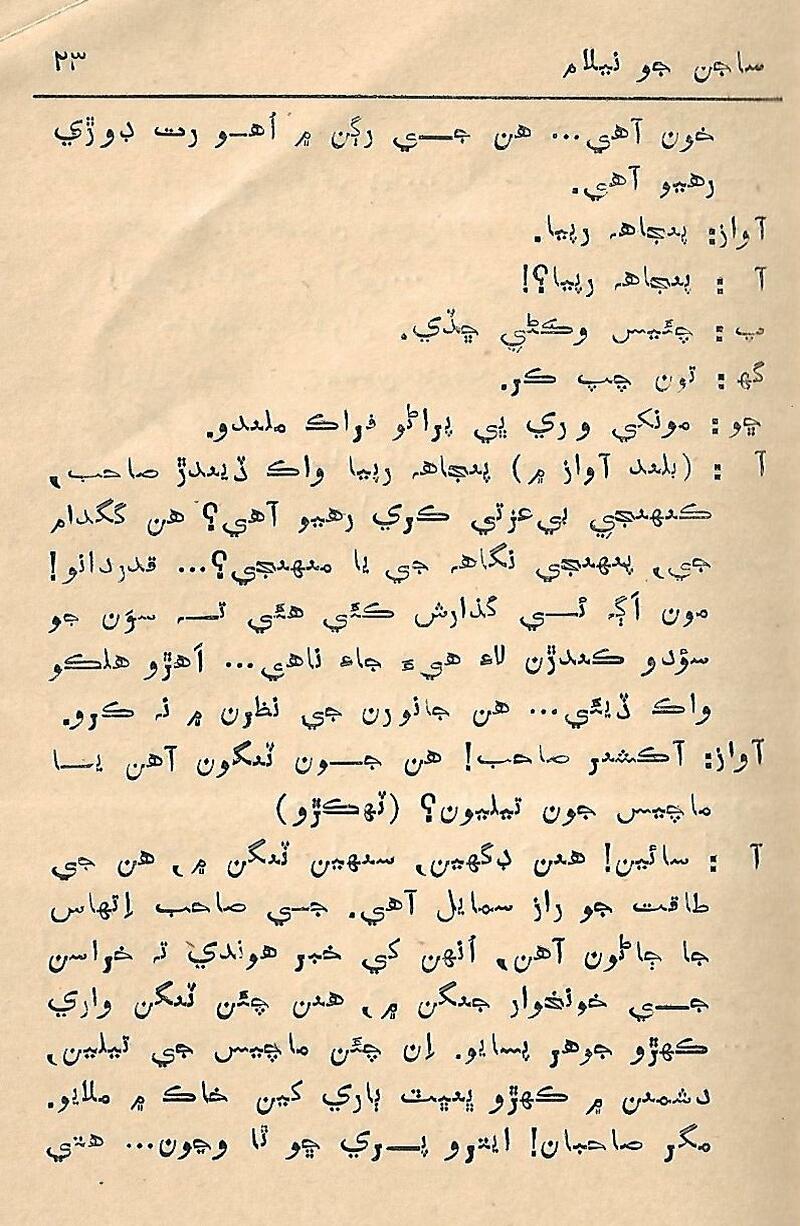 ساڄن جو نيلام ٢٣
خون آهي... هن جي رڳن ۾ اُهو رت ڊوڙي
رهيو آهي.
آواز: پنجاهه رپيا.
آ : پنجاهه رپيا؟!
ب : چئيس وڪڻي ڇڏي.
گهه : تون چپ ڪر.
ڇو : مونکي وري ڀي پراڻو فراڪ ملندو.
آ : (بلند آواز ۾) پنجاهه رپيا واڪ ڏيندڙ صاحب،
ڪنهنجي بيعزتي ڪري رهيو آهي؟ هن گگدام
جي، پنهنجي نگاهه جي يا منهنجي؟... قدردانو!
مون اَڳ ئي گذارش ڪئي هئي ته سوَن جو
سؤدو ڪندڙن لاءِ هيءَ جاءِ ناهي... اَهڙو هلڪو
واڪ ڏيئي... هن جانورن جي نظرن ۾ نه ڪرو.
آواز: آڪشنر صاحب! هن جون ٽنگون آهن يا
ماچيس جون تيليون؟ (ٽهڪڙو)
آ : سائين! هنن ڊگهين، سنهين ٽنگن ۾، هن جي
طاقت جو راز سمايل آهي. جي صاحب اِتهاس
جا ڄاڻون آهن، اُنهن کي خبر هوندي ته خراسن
جي خونخوار جنگن ۾، هنن چئن ٽنگن واري
ڪهڙو جوهر پسايو. اِن چئن ماچيس جي تيلين،
دشمنن ۾ ڪهڙو ڀنڀٽ ٻاري کين خاڪ ۾ ملايو.
مگر صاحبان! ايترو پري ڇو ٿا وڃون... هتي